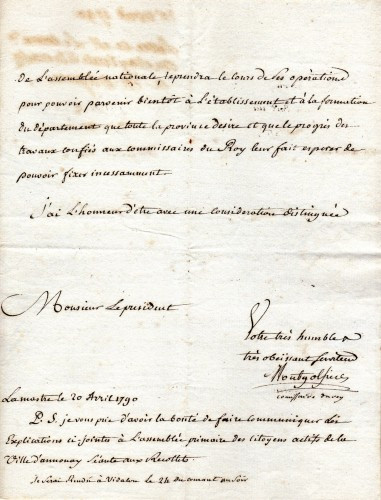 de L'assemblée nationale, reprendra le cours de ses opérations
pour pouvoir parvenir bientôt à L'établissement et à la formation
du département que toute la province desire et que le progrès des
travaux confiés aux commissaires du Roy leur fait esperer de
pouvoir fixer incessamment.
J'ai L'honneur d'être avec une consideration distinguée
Monsieur Le président
Votre très humble &
très obeissant serviteur
Montgolfier
commissaire du roy
Lamastre le 20 Avril 1790
P. S. je vous prie d'avoir la bonté de faire communiquer les
Explications ci-jointes à L'assemblée primaire des citoyens actifs de la
Ville d'annonay Séante aux Recollets.
Je serai Rendu à Vidalon le 24 du courant au soir